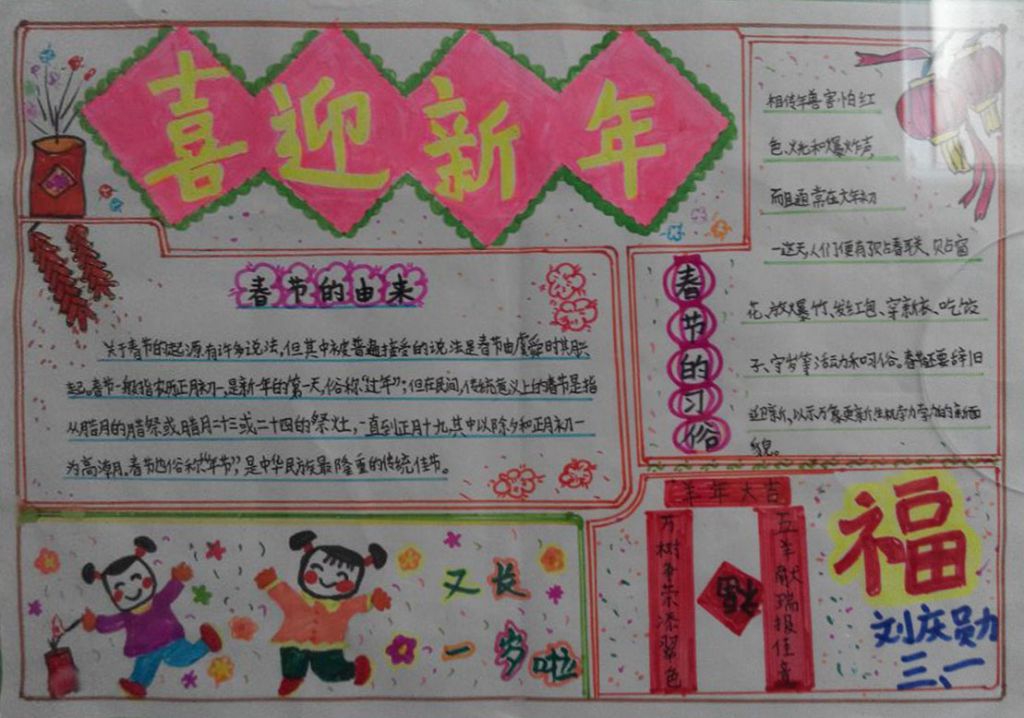 喜迎新年
春节的由来
关于春节的起源有许多说法,但其中被普遍接受的说法是春节由虞舜时其月兴
起。春节一般指农历正月初一,是新一年的第一天,俗称“过年”;但在民间,传统意义上的春节是指
从腊月的腊祭或腊月二十三或二十四的祭灶,一直到正月十九,其中以除夕和正月初一
为高潮月,春节也俗称“年节”,是中华民族最隆重的传统佳节。
相传年兽害怕红
色、火光和爆炸声,
而且通常在大年初
一这天,人们便有了贴春联、贴窗
花、放爆竹、发红包、穿新衣、吃饺
子、守岁等活动和习俗。春节还要辞旧
迎新,以示万象更新生机
新面
貌。
春节的习俗
又长
一岁啦
羊年大吉
万树争荣添翠色
五羊献瑞报佳音
福
福
刘庆勋
三、一